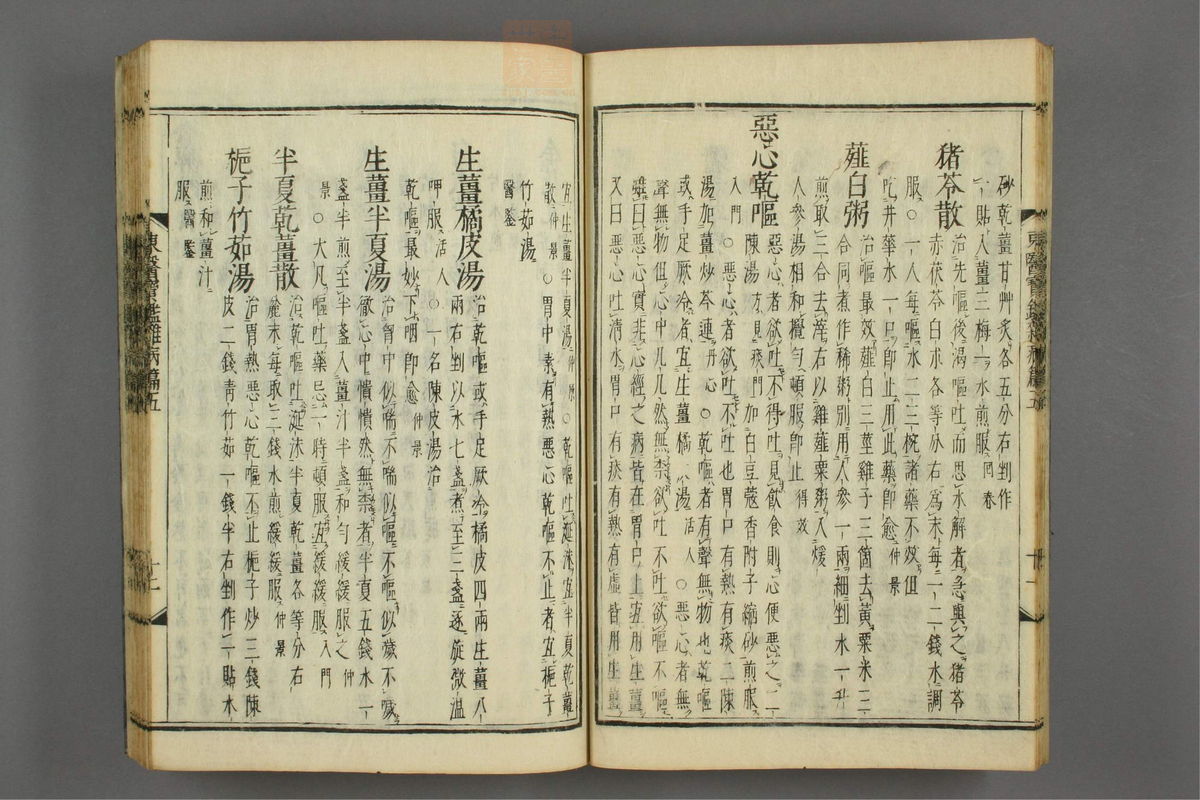 砂乾薑甘艸炙各五分右剉作
一貼入薑三梅一水煎服回春
猪苓散
治先嘔後渴嘔吐而思水解者急與之猪苓
赤茯苓白朮各等分右為末每二錢水調
服○一人每嘔水二三椀諸藥不效但
吃井華水一口即止用此藥即愈仲景
薤白粥
治嘔最效薤白三莖雞子三箇去黃粟米三
合同煮作稀粥別用人參一兩細剉水一升
煎取三合去滓右以雞薤粟粥入煖
人參湯相和攪勻頓服即止得效
惡心乾嘔
惡心者欲吐不得吐見飲食則心便惡之二
陳湯方見痰門加白豆蔻香附子縮砂煎服
入門○惡心者欲吐不吐也胃口有熱有痰二陳
湯加薑炒芩連丹心○乾嘔者有聲無物也乾嘔
或手足厥冷者宜生薑橘皮湯活人○惡心者無
聲無物但心中兀兀然無柰欲吐不吐欲嘔不
嘔雖曰惡心實非心經之病皆在胃口上宜用生薑
又曰惡心吐清水胃口有痰有熱有虛皆用生薑
宜生薑半夏湯仲景○乾嘔吐涎沫宜半夏乾薑
散仲景○胃中素有熱惡心乾嘔不止者宜梔子
竹茹湯
醫鑒
生薑橘皮湯
治乾嘔或手足厥冷橘皮四兩生薑八
兩右剉以水七盞煮至三盞逐旋微溫
呷服活人○一名陳皮湯治
乾嘔最妙下咽即愈仲景
生薑半夏湯
治胃中似喘不喘似嘔不嘔似噦不噦
徹心中憒憒然無柰者半夏五錢水一
盞半煎至半盞入薑汁半盞和勻緩緩服之仲
景○大凡嘔吐藥忌一時頓服宜緩緩服入門
半夏乾薑散
治乾嘔吐涎沫半夏乾薑各等分右
麄末每取三錢水煎緩緩服仲景
梔子竹茹湯
治胃熱惡心乾嘔不止梔子炒三錢陳
皮二錢青竹茹一錢半右剉作一貼水
煎和薑汁
服醫鑒
東醫寶鑑雜病篇五